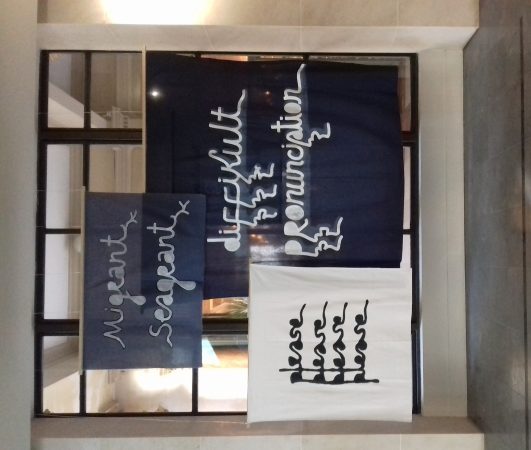 Migeant
Seageant
diffikult
pronunciption
please
please
please
please